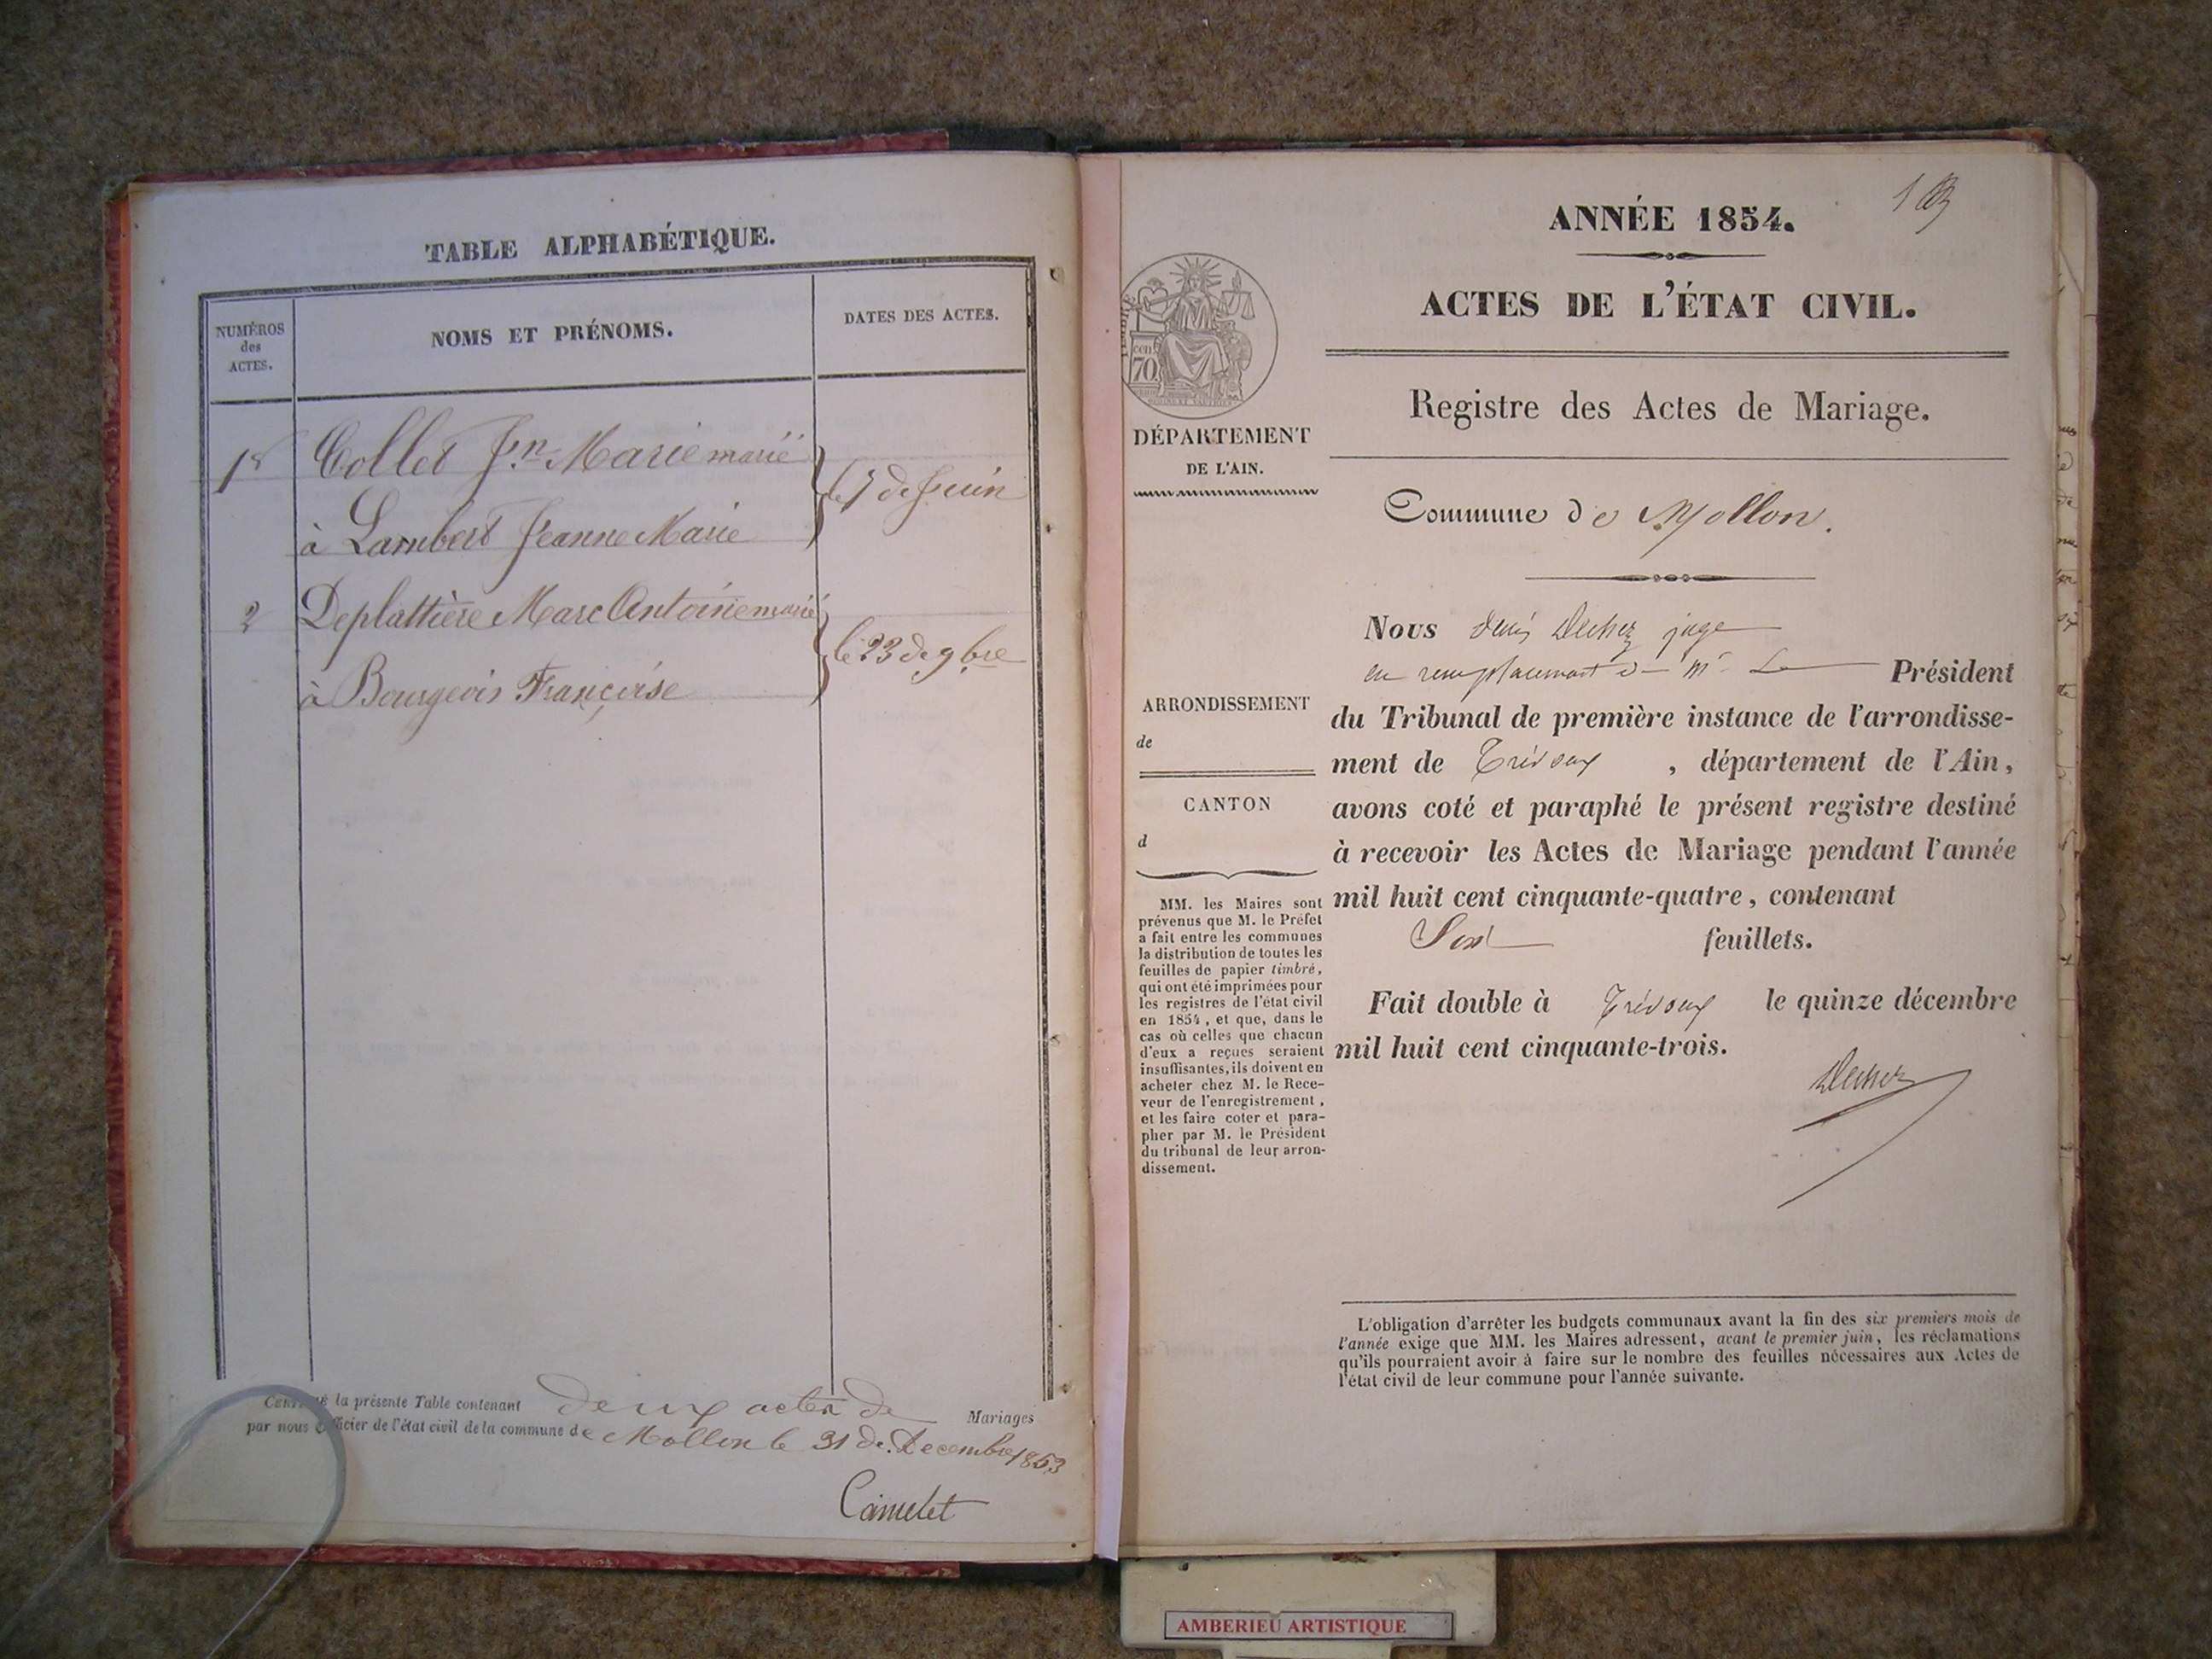 TABLE ALPHABÉTIQUE.
NUMÉROS
des
ACTES.
NOMS ET PRÉNOMS.
DATES DES ACTES.
1r
Collet Jn. Marie marié
à Lambert Jeanne Marie
le 7 de Juin
2
Deplattière Marc Antoine marié
à Bourgeois Françoise
le 23 de 9bre
CERTIFIÉ la présente Table contenant deux actes de Mariages
par nous Officier de l'état civil de la commune de Mollon le 31 de. Decembre 1853
Camelet
ANNÉE 1854.
ACTES DE L'ÉTAT CIVIL.
Registre des Actes de Mariage.
70
DÉPARTEMENT
DE L'AIN.
Commune de Mollon.
ARRONDISSEMENT
de
CANTON
d
MM. les Maires sont
prévenus que M. le Préfet
a fait entre les communes
la distribution de toutes les
feuilles de papier timbré,
qui ont été imprimées pour
les registres de l'état civil
en 1854, et que, dans le
cas où celles que chacun
d'eux a reçues seraient
insuffisantes, ils doivent en
acheter chez M. le Rece-
veur de l'enregistrement,
et les faire coter et para-
pher par M. le Président
du tribunal de leur arron-
dissement.
Nous Denis juge
en remplacement de Mr Le Président
du Tribunal de première instance de l'arrondisse-
ment de Trévoux, département de l'Ain,
avons coté et paraphé le présent registre destiné
à recevoir les Actes de Mariage pendant l'année
mil huit cent cinquante-quatre, contenant
feuillets.
Fait double à Trévoux le quinze décembre
mil huit cent cinquante-trois.
L'obligation d'arrêter les budgets communaux avant la fin des six premiers mois de
l'année exige que MM. les Maires adressent, avant le premier juin, les réclamations
qu'ils pourraient avoir à faire sur le nombre des feuilles nécessaires aux Actes de
l'état civil de leur commune pour l'année suivante.
AMBERIEU ARTISTIQUE